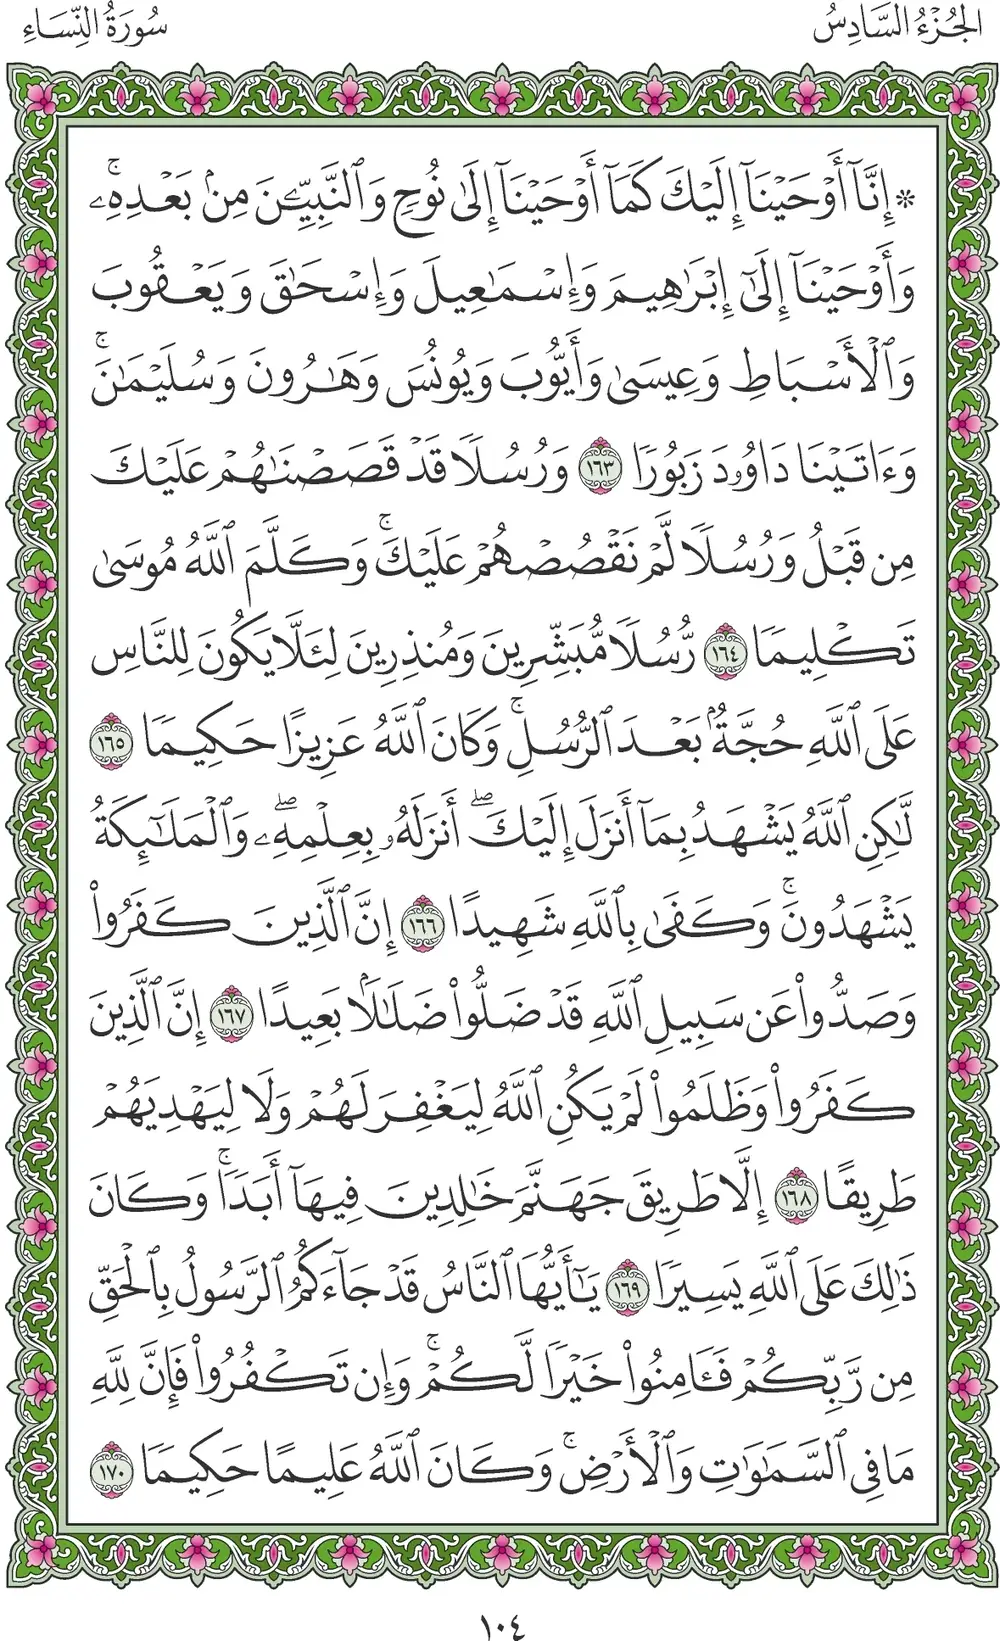 الجُزْءُ السَّادِسُ
سُورَةُ النِّسَاءِ
* إِنَّآ أَوْحَيْنَآ إِلَيْكَ كَمَآ أَوْحَيْنَآ إِلَىٰ نُوحٍ وَٱلنَّبِيِّـۧنَ مِنۢ بَعْدِهِۦۚ
وَأَوْحَيْنَآ إِلَىٰٓ إِبْرَٰهِيمَ وَإِسْمَٰعِيلَ وَإِسْحَٰقَ وَيَعْقُوبَ
وَٱلْأَسْبَاطِ وَعِيسَىٰ وَأَيُّوبَ وَيُونُسَ وَهَٰرُونَ وَسُلَيْمَٰنَۚ
وَءَاتَيْنَا دَاوُۥدَ زَبُورًا ١٦٣ وَرُسُلًا قَدْ قَصَصْنَٰهُمْ عَلَيْكَ
مِن قَبْلُ وَرُسُلًا لَّمْ نَقْصُصْهُمْ عَلَيْكَۚ وَكَلَّمَ ٱللَّهُ مُوسَىٰ
تَكْلِيمًا ١٦٤ رُّسُلًا مُّبَشِّرِينَ وَمُنذِرِينَ لِئَلَّا يَكُونَ لِلنَّاسِ
عَلَى ٱللَّهِ حُجَّةٌۢ بَعْدَ ٱلرُّسُلِۚ وَكَانَ ٱللَّهُ عَزِيزًا حَكِيمًا ١٦٥
لَّٰكِنِ ٱللَّهُ يَشْهَدُ بِمَآ أَنزَلَ إِلَيْكَۖ أَنزَلَهُۥ بِعِلْمِهِۦۖ وَٱلْمَلَٰٓئِكَةُ
يَشْهَدُونَۚ وَكَفَىٰ بِٱللَّهِ شَهِيدًا ١٦٦ إِنَّ ٱلَّذِينَ كَفَرُوا۟
وَصَدُّوا۟ عَن سَبِيلِ ٱللَّهِ قَدْ ضَلُّوا۟ ضَلَٰلًۢا بَعِيدًا ١٦٧ إِنَّ ٱلَّذِينَ
كَفَرُوا۟ وَظَلَمُوا۟ لَمْ يَكُنِ ٱللَّهُ لِيَغْفِرَ لَهُمْ وَلَا لِيَهْدِيَهُمْ
طَرِيقًا ١٦٨ إِلَّا طَرِيقَ جَهَنَّمَ خَٰلِدِينَ فِيهَآ أَبَدًاۚ وَكَانَ
ذَٰلِكَ عَلَى ٱللَّهِ يَسِيرًا ١٦٩ يَٰٓأَيُّهَا ٱلنَّاسُ قَدْ جَآءَكُمُ ٱلرَّسُولُ بِٱلْحَقِّ
مِن رَّبِّكُمْ فَـَٔامِنُوا۟ خَيْرًا لَّكُمْۚ وَإِن تَكْفُرُوا۟ فَإِنَّ لِلَّهِ
مَا فِى ٱلسَّمَٰوَٰتِ وَٱلْأَرْضِۚ وَكَانَ ٱللَّهُ عَلِيمًا حَكِيمًا ١٧٠
١٠٤